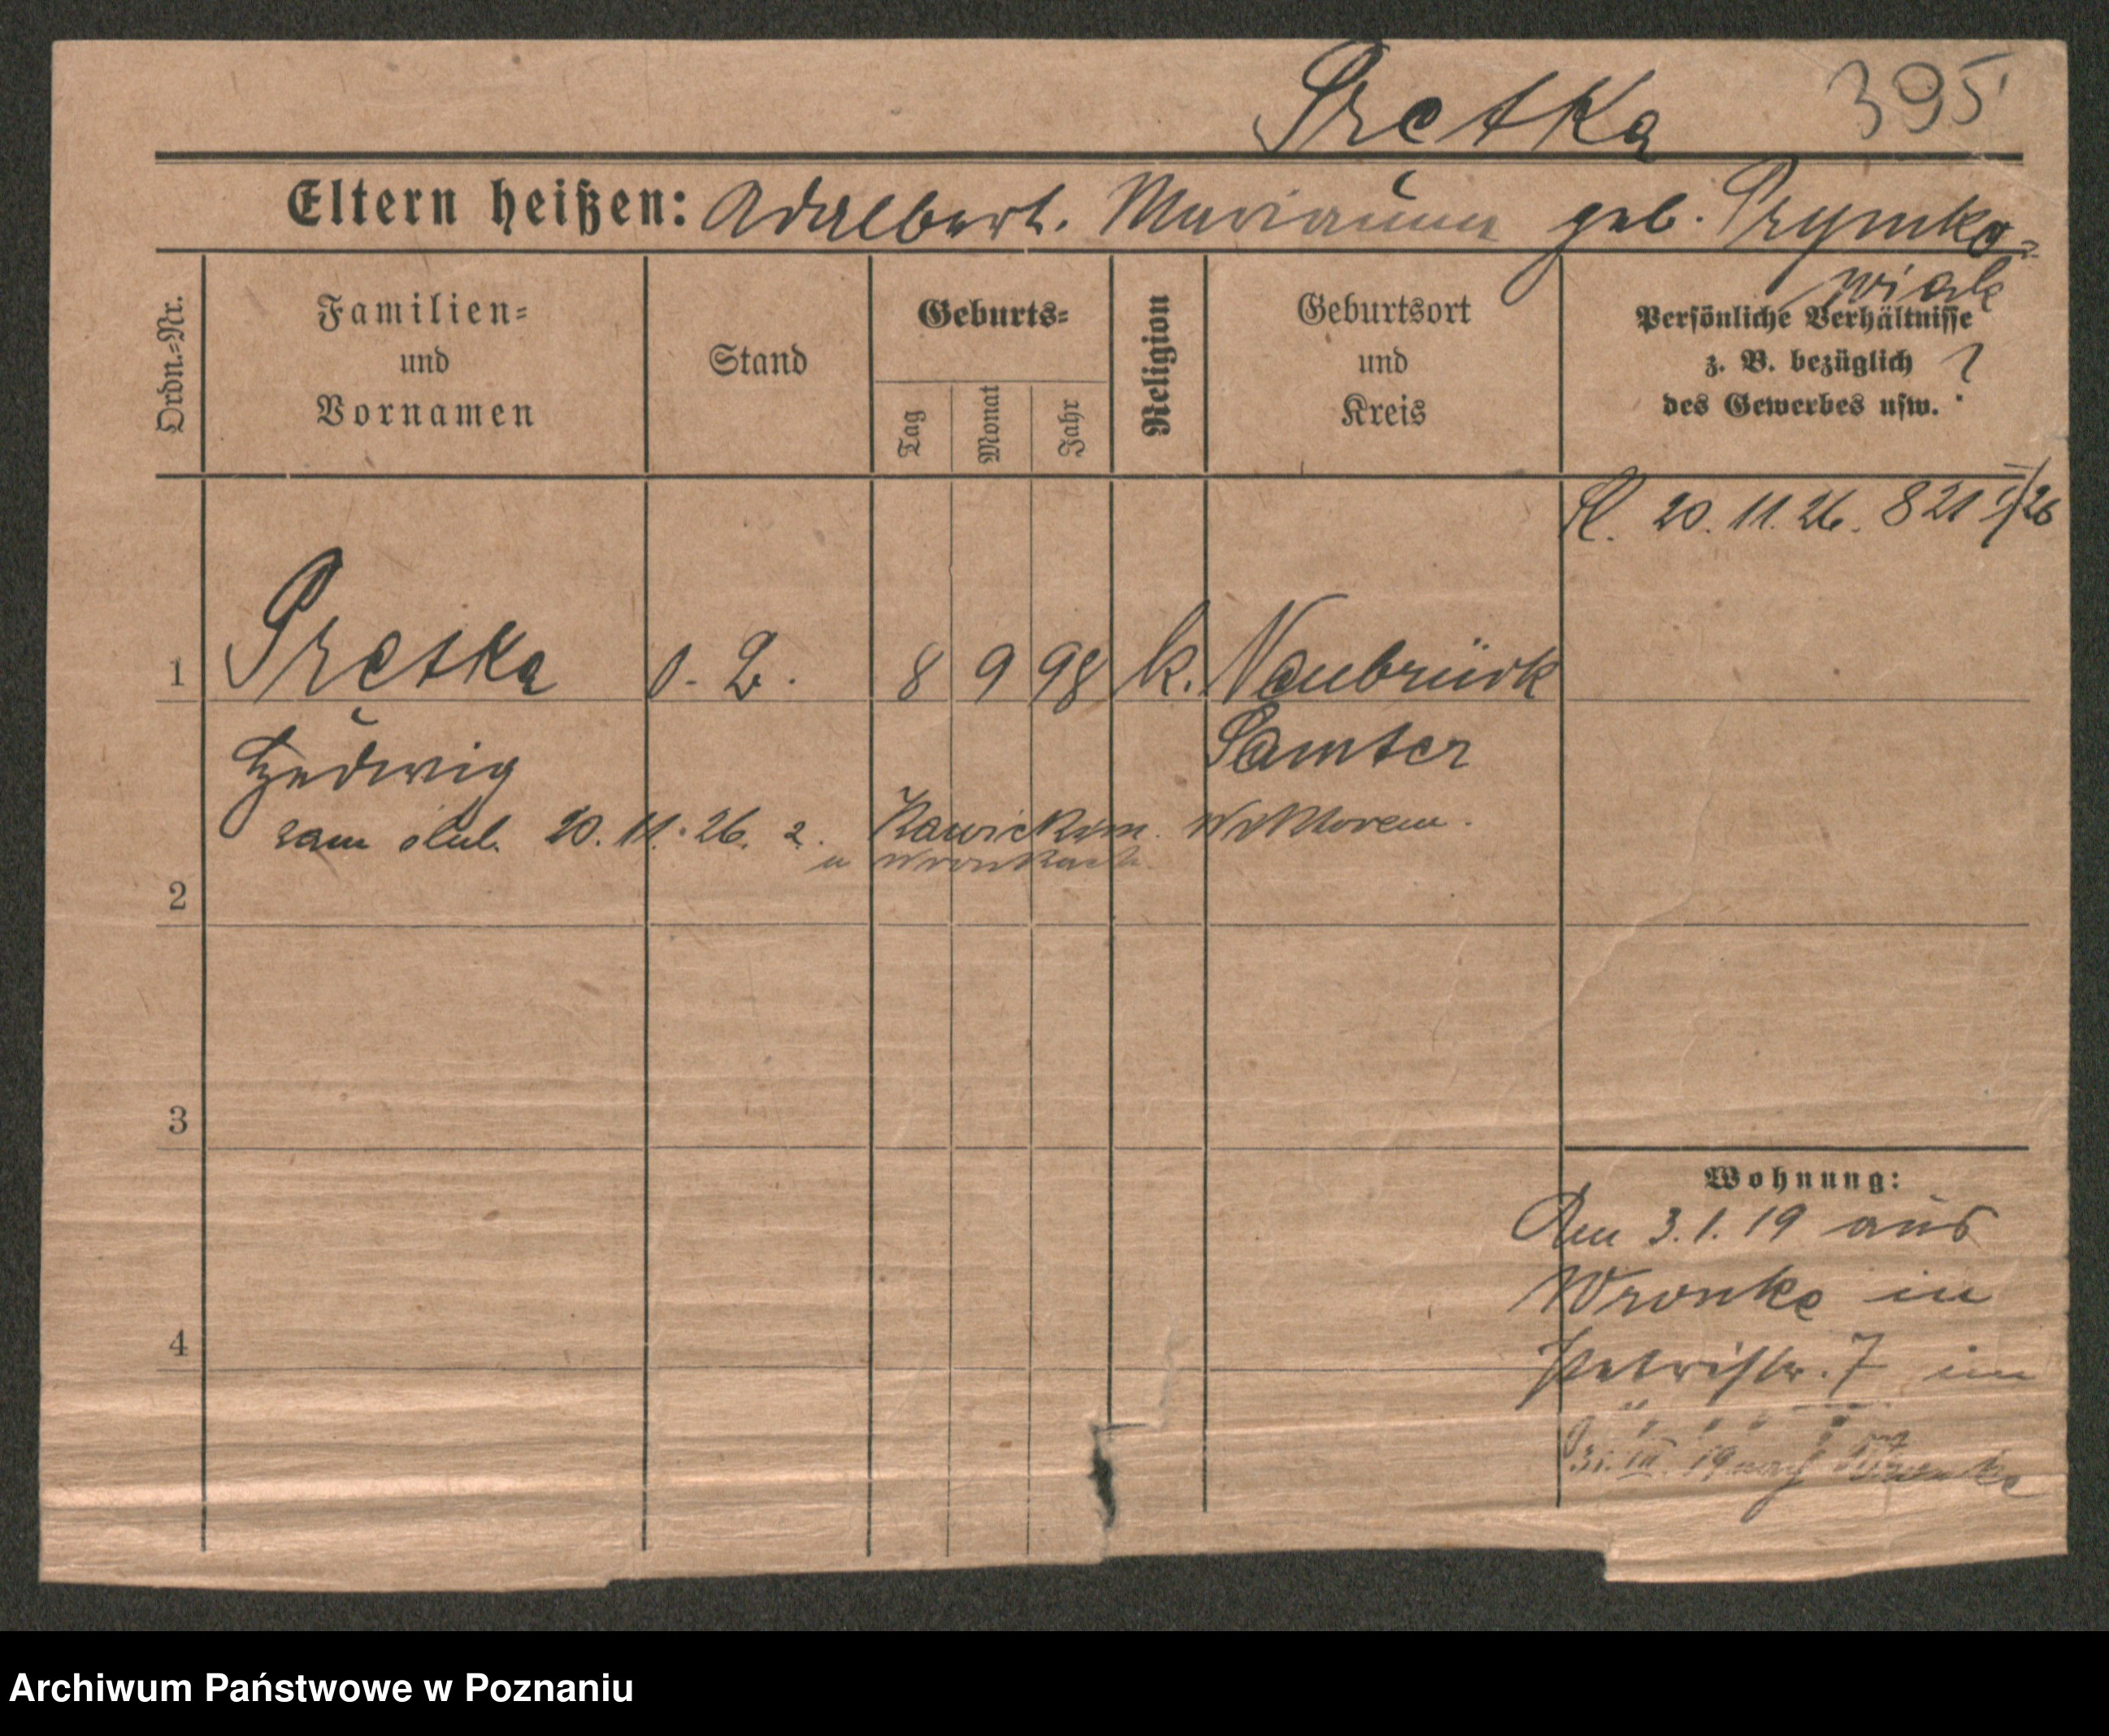 Pretka 395
Eltern heißen: Adalbert. Marianna geb. Prymko=
wiak
Ordn.=Nr.
Familien=
und
Vornamen
Stand
Geburts=
Tag
Monat
Jahr
Religion
Geburtsort
und
Kreis
Persönliche Verhältnisse
z. B. bezüglich ?
des Gewerbes usw.
20. 11. 26. 821 /26
1 Pretka o. B. 8 9 98 k. Neubrück
Hedwig Samter
zam ślub. 20. 11. 26. z. Rawickim Wiktorem.
u Wronkach
2
3
4
Wohnung:
Am 3.1.19 aus
Wronke in
Petristr. 7 im
31. III. 19 nach Wronke
Archiwum Państwowe w Poznaniu